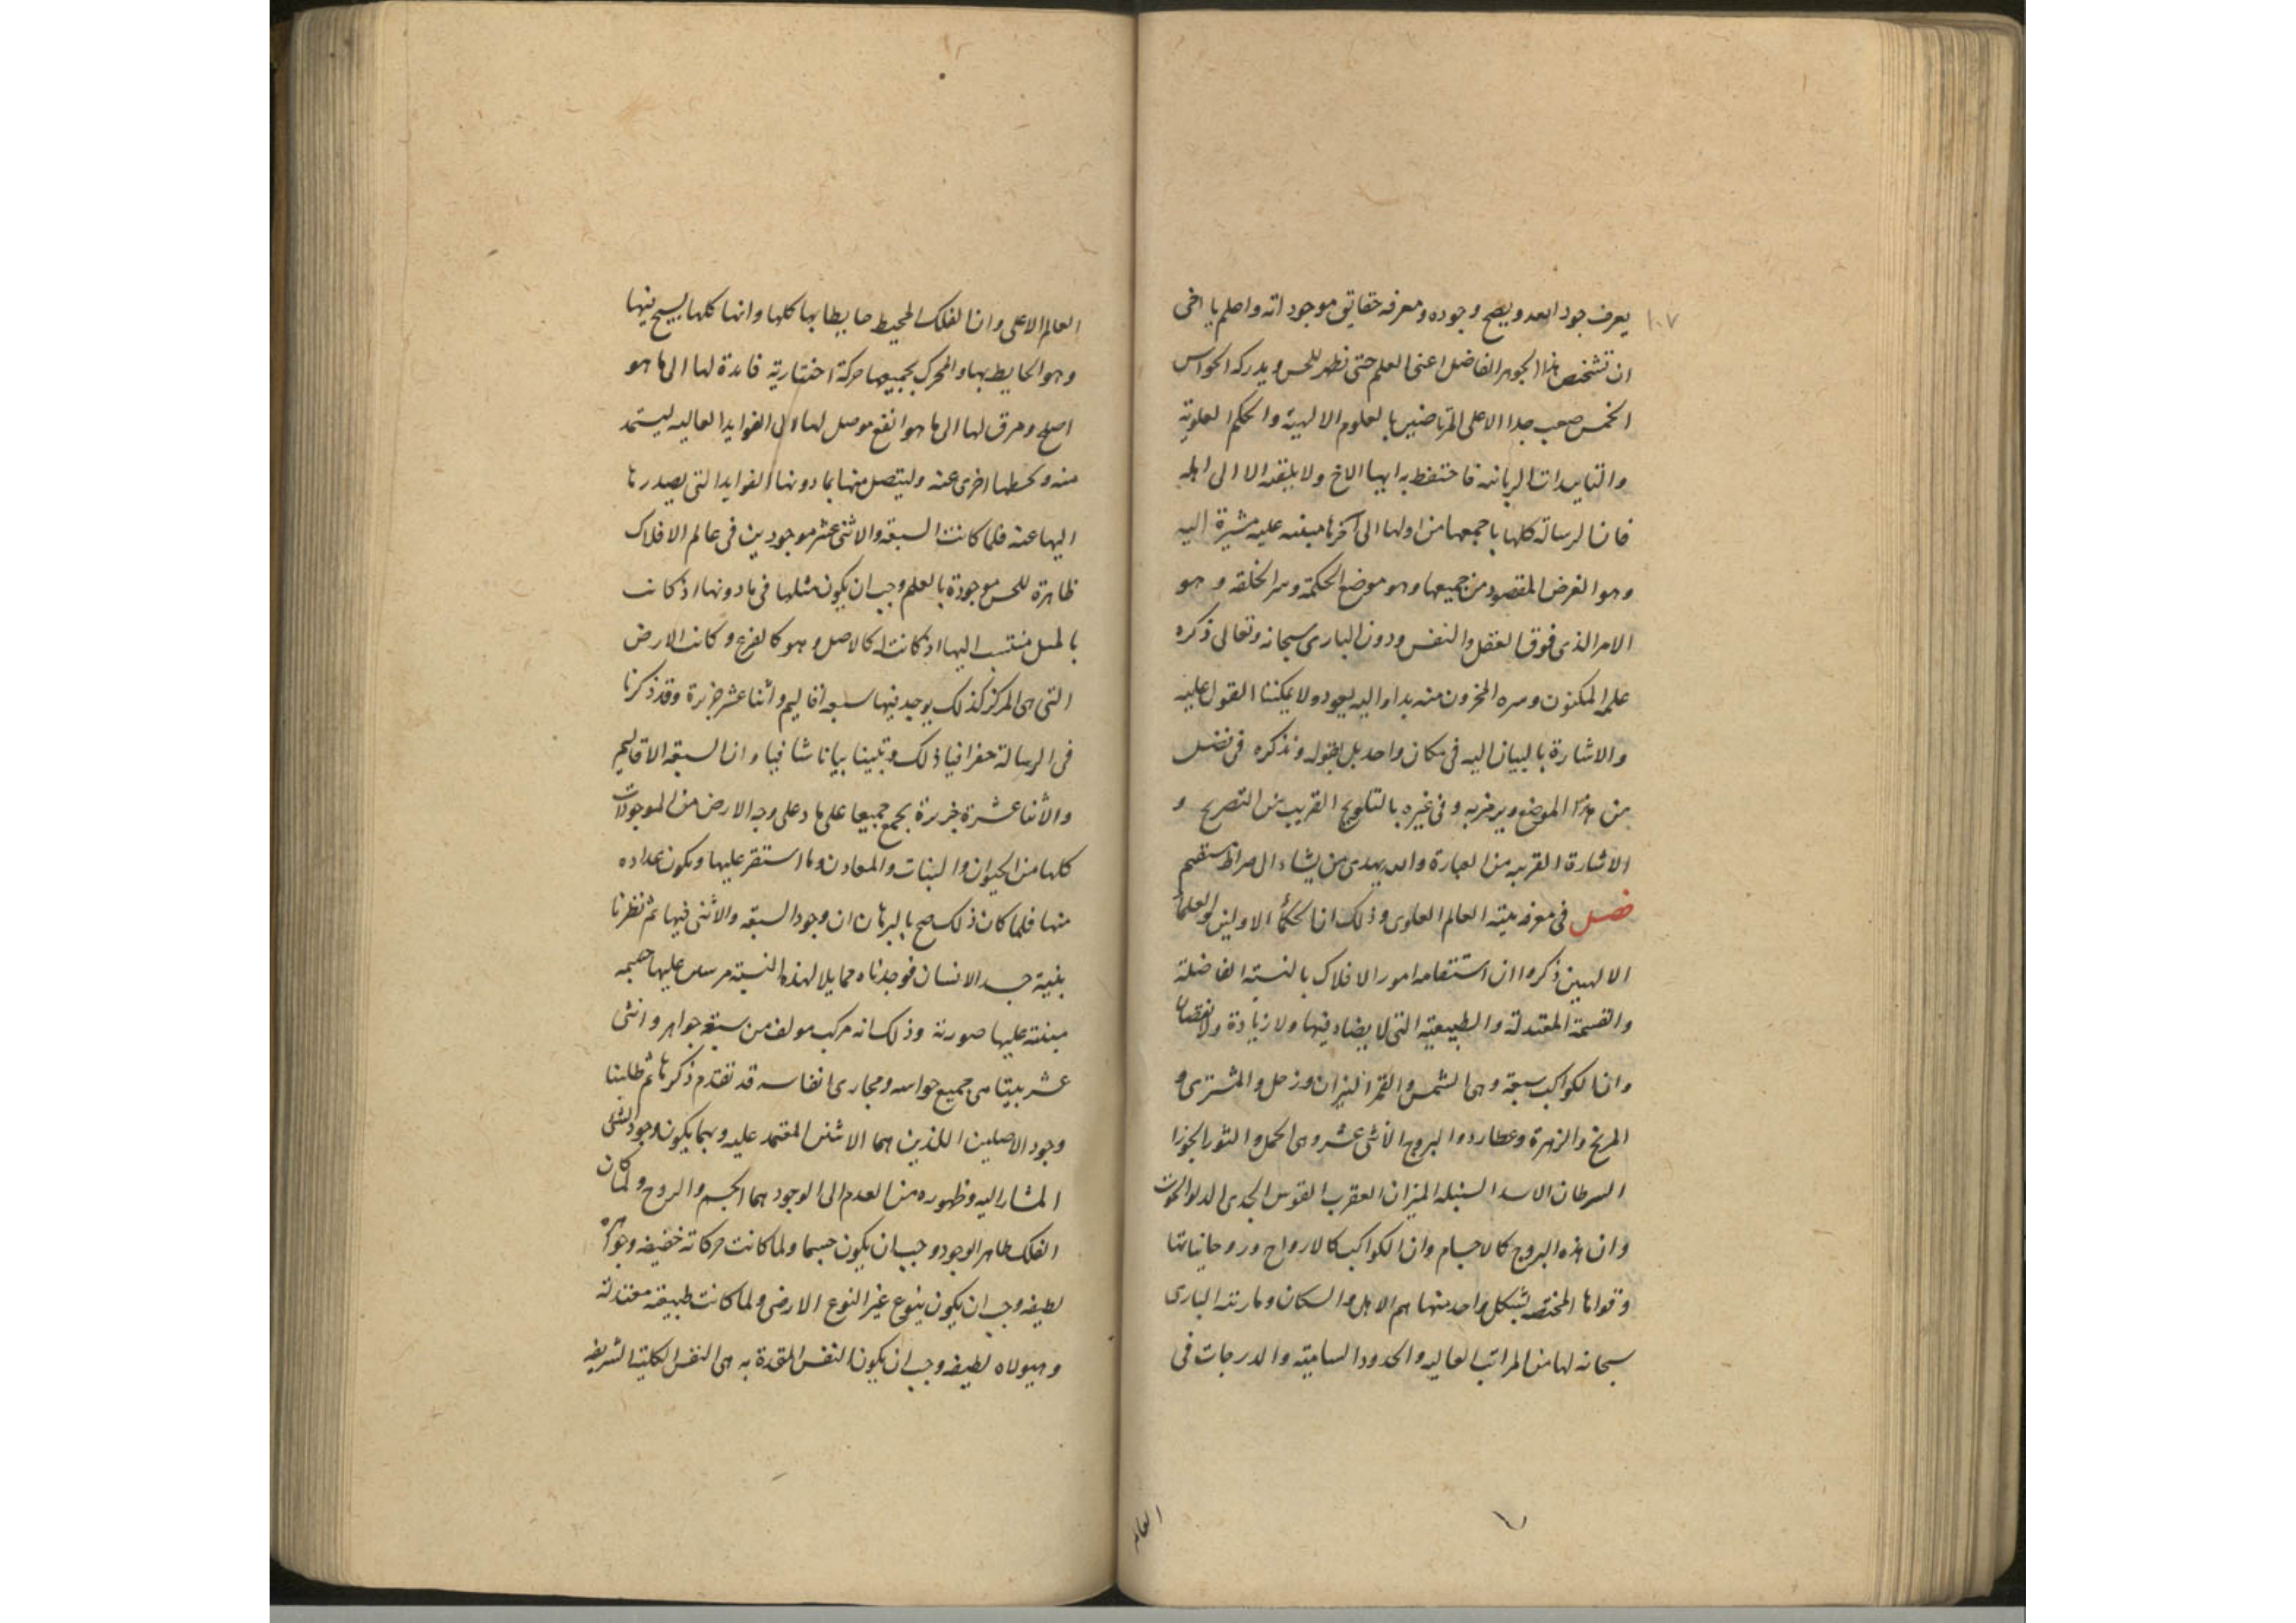 ١٠٧
يعرف جود الله ويصح وجوده ومعرفه حقايق موجوداته واعلم يا اخى
ان تشخص هذا الجوهر الفاضل اعنى العلم حتى تظهر للحس ويدركه الحواس
الخمس صعب جدا الا على المرتاضين بالعلوم الالهية والحكم العلوية
والتاييدات الربانيه فاحتفظ به ايها الاخ ولا تلقه الا الى اهله
فان الرسالة كلها باجمعها من اولها الى آخرها مبنيه عليه مشيرة اليه
وهو الغرض المقصود من جميعها وهو موضع الحكمة وسر الخلقه وهو
الامر الذى فوق العقل والنفس ودون البارى سبحانه وتعالى ذكره
علمه المكنون وسره المخزون منه بدا واليه يعود ولا يمكننا القول عليه
والاشارة بالبيان اليه فى مكان واحد بل نقوله ونذكره فى فصل
من هذا الموضع ويرمز به وفى غيره بالتلويح القريب من التصريح و
الاشارة القريبه من العبارة والله يهدى من يشاء الى صراط مستقيم
فصل فى معرفه بنية العالم العلوى وذلك ان الحكماء الاولين والعلماء
الالهيين ذكروا ان استقامه امور الافلاك بالنسبة الفاضلة
والقسمة المعتدلة والطبيعية التى لا يضاد فيها ولا زيادة ولا نقصان
وان الكواكب سبعة وهى الشمس والقمر النيران وزحل والمشترى و
المريخ والزهرة وعطارد والبروج الاثنى عشر وهى الحمل والثور الجوزا
السرطان الاسد السنبله الميزان العقرب القوس الجدى الدلو الحوت
وان هذه البروج كالاجسام وان الكواكب كالارواح وروحانياتها
وقواها المختصه بشكل واحد منها هم الاهل والسكان وما رتبه البارى
سبحانه لها من المراتب العاليه والحدود السامية والدرجات فى
العالم
العالم الاعلى وان الفلك المحيط حايطا بها كلها وانها كلها يسبح فيها
وهو الحايط بها والمحرك بجميعها حركة اختيارية قايدة لها الى ما هو
اصلح ومرق لها الى ما هو انفع موصل لها الى الفوايد العاليه ليستمد
منه اخرى عنه وليتصل منها بما دونها الفوايد التى يصدرها
اليها عنه فلما كانت السبعة والاثنى عشر موجودين فى عالم الافلاك
ظاهرة للحس موجودة بالعلم وجب ان يكون مثلها فى ما دونها اذ كانت
منتسب اليها اذ كانت كالاصل وهو كالفرع وكانت الارض
التى هى المركز كذلك يوجد فيها سبعه اقاليم واثنا عشر جزيرة وقد ذكرنا
فى الرسالة جغرافيا ذلك وتبينا بيانا شافيا وان السبعه الاقاليم
والاثنا عشرة جزيرة بجمع جميعا على ما على وجه الارض من الموجودات
كلها من الحيوان والنبات والمعادن وما استقر عليها ويكون عداده
منها فلما كان ذلك صح بالبرهان ان وجود السبعه والاثنى فيها ثم نظرنا
بنية جسد الانسان فوجدناه ممايلا لهذه النسبة عليها جسمه
مبنته عليها صورته وذلك انه مركب مولف من سبعة جواهر واثنى
عشر بيتا هى جميع حواسه ومجارى انفاسه قد تقدم ذكرها ثم طلبنا
وجود الاصلين اللذين هما الاثنين المعتمد عليه وبهما يكون وجود الشى
المشار اليه وظهوره من العدم الى الوجود هما الجسم والروح ولما كان
الفلك ظاهر الوجود وجب ان يكون جسما ولما كانت حركاته خفيفه وجواهره
لطيفه وجب ان يكون بنوع غير النوع الارضى ولما كانت طبيعته معتدلة
وهيولاه لطيفه وجب ان يكون النفس المتحدة به هى النفس الكلية الشريفه